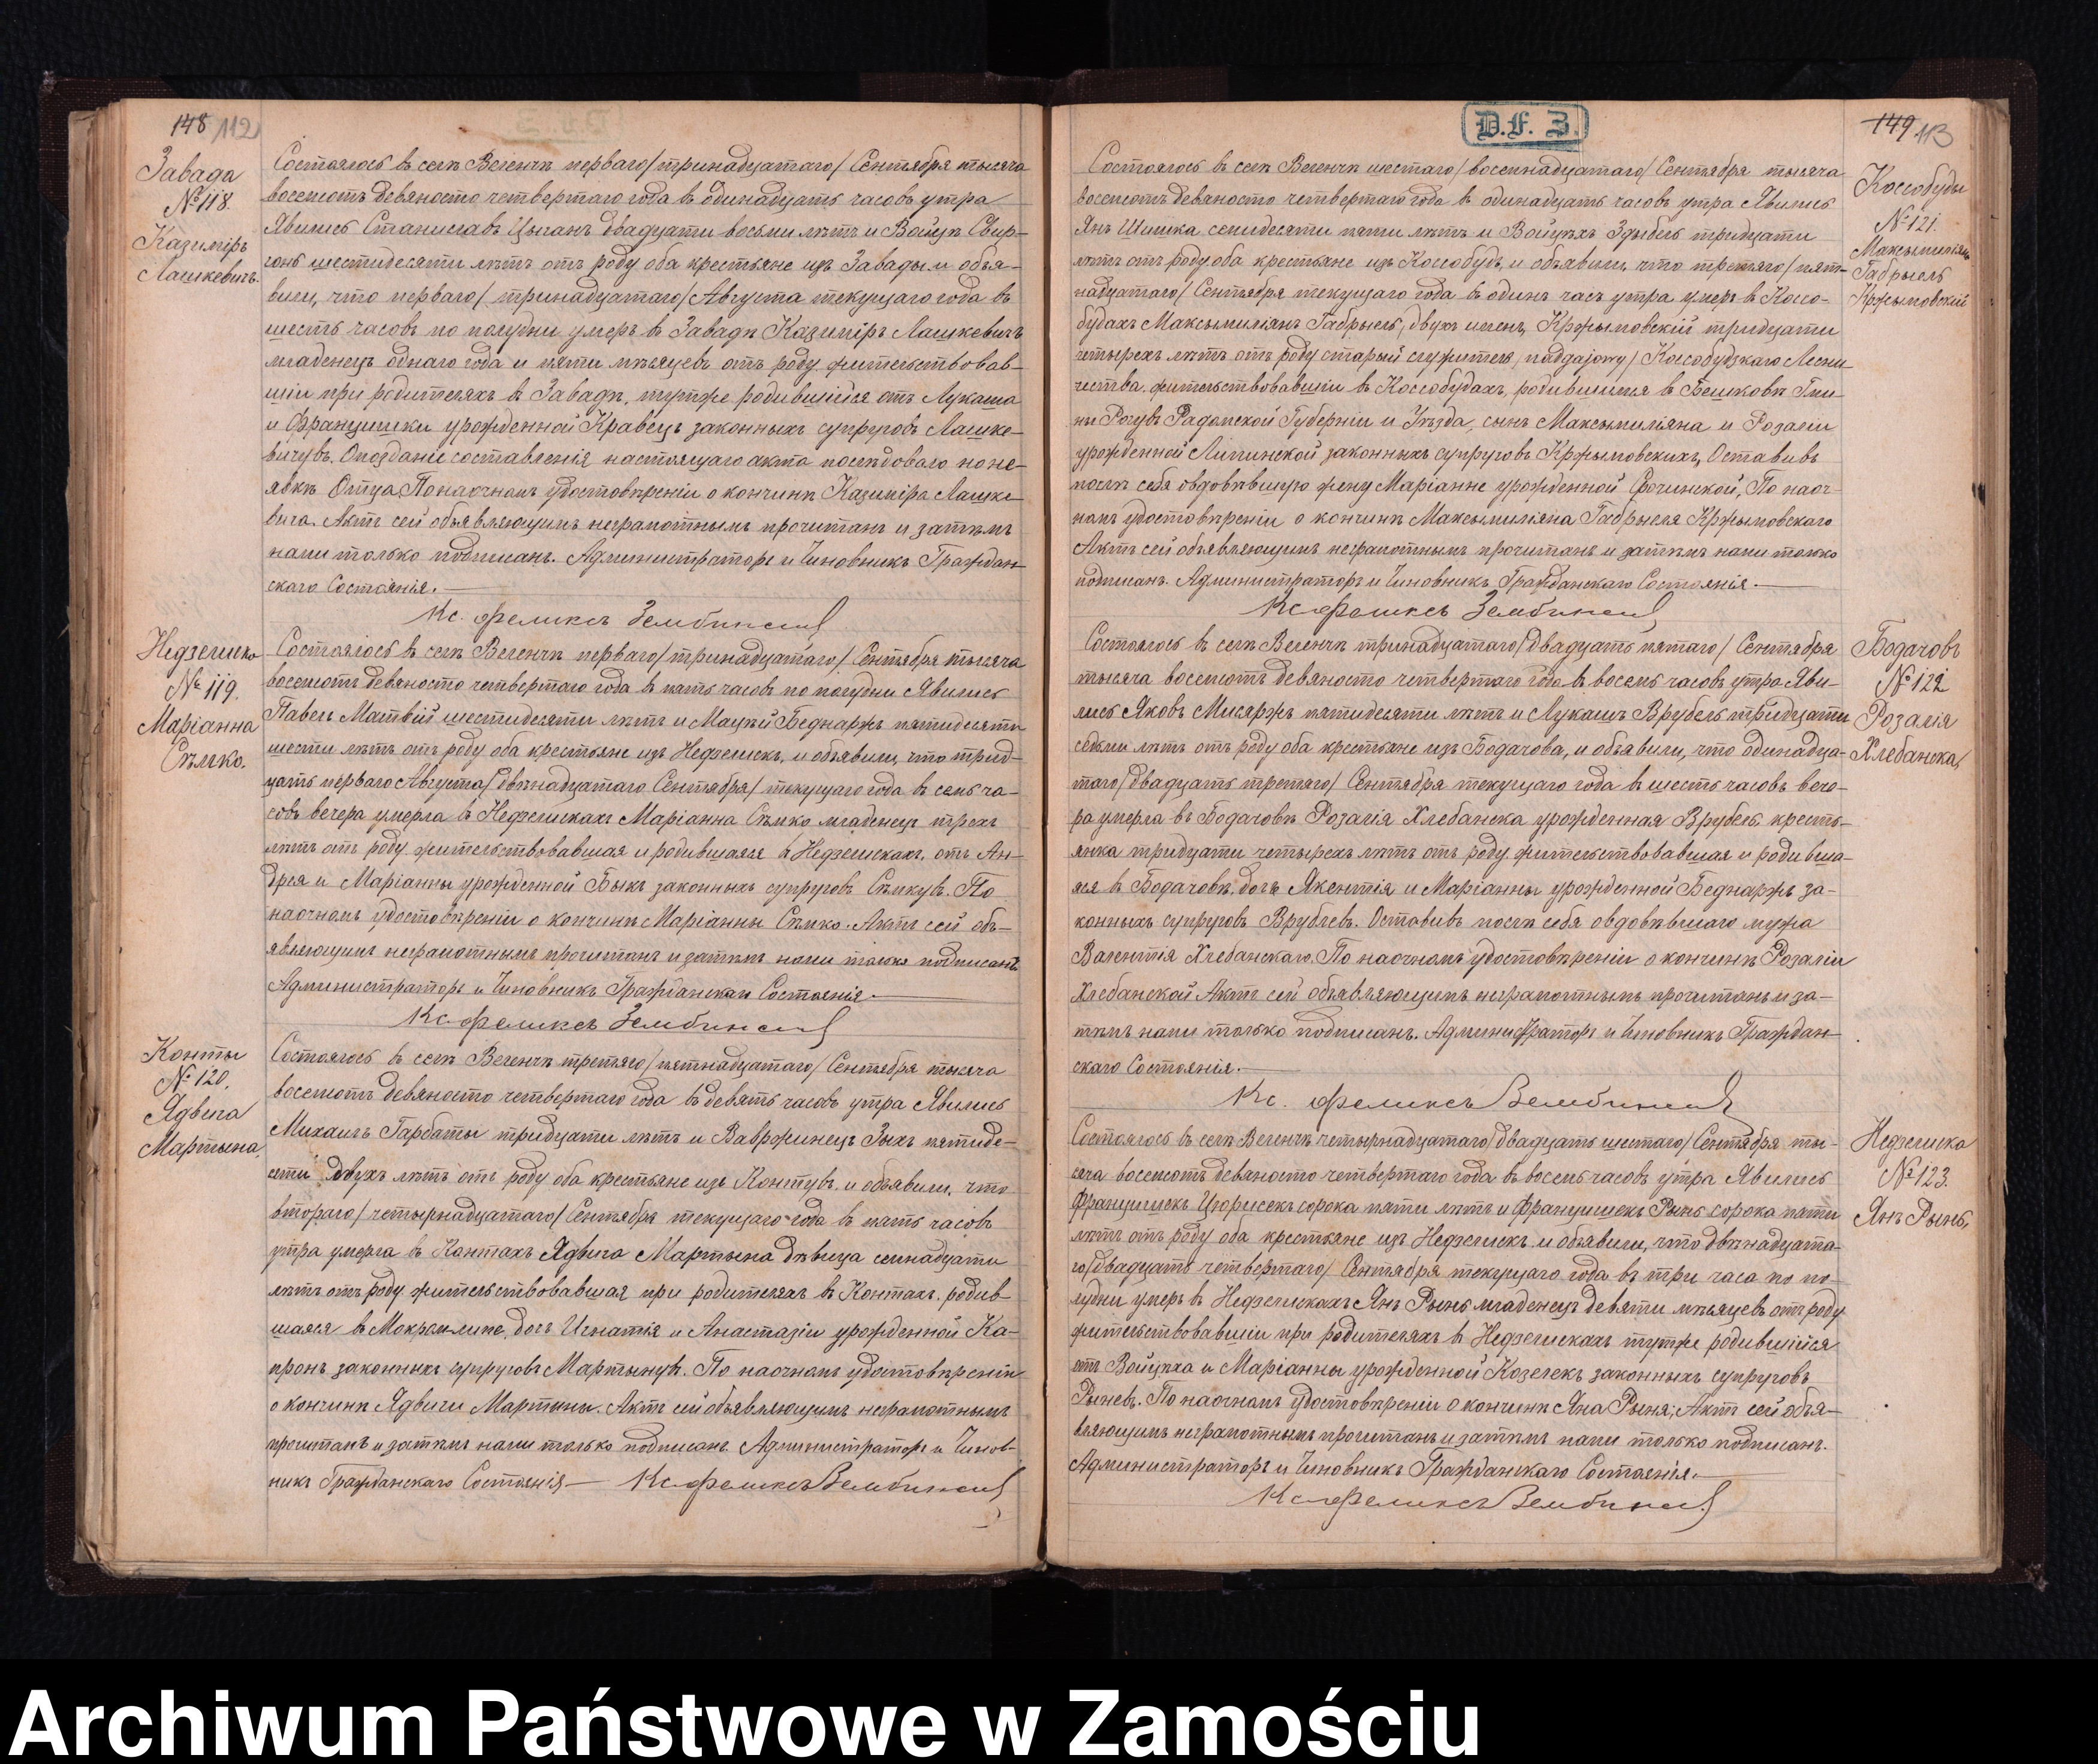 148 112
Завада
№ 118.
Казимiръ
Лашкевичъ.
Состоялось въ селѣ Веленчѣ перваго /тринадцатаго/ Сентября тысяча
восемотъ девяносто четвертаго года въ одинадцать часовъ утра
Явились Станиславъ Цыганъ двадцати восьми лѣтъ и Войцѣ Свир-
гонь шестидесяти лѣтъ отъ роду оба крестьяне изъ Завады и объя-
вили, что перваго /тринадцатаго/ Августа текущаго года въ
шесть часовъ по полудни умеръ в Завадѣ Казимiръ Лашкевичъ
младенецъ однаго года и пяти мѣсяцевъ отъ роду жительствовав-
шiи при родителяхъ в Завадѣ, тутже родившiйся отъ Лукаша
и Францишки урожденной Кравецъ законныхъ супруговъ Лашке-
вичувъ. Опозданiе составленiя настоящаго акта послѣдовало по не-
явкѣ Отца, По наочномъ удостовѣренiи о кончинѣ Казимiра Лашке
вича. Актъ сей объявляющимъ неграмотнымъ прочитанъ и затѣмъ
нами только подписанъ. Администраторъ и Чиновникъ Граждан
скаго Состоянiя.
Кс. Феликсъ Зембинскiй
Недзелиско
№ 119.
Марiанна
Сѣмко.
Состоялось въ селѣ Веленчѣ перваго /тринадцатаго/ Сентября тысяча
восемотъ девяносто четвертаго года въ пять часовъ по полудни Явились
Павелъ Матвiй шестидесяти лѣтъ и Мацѣй Беднаржъ пятидесяти
шести лѣтъ отъ роду оба крестьяне изъ Недзелискъ, и объявили, что трид-
цать перваго Августа /двѣнадцатаго Сентября/ текущаго года въ семь ча-
совъ вечера умерла в Недзелискахъ Марiанна Сѣмко младенецъ трехъ
лѣтъ отъ роду жительствовавшая и родившаяся в Недзелискахъ, отъ Ан-
дрея и Марiанны урожденной Быкъ законныхъ супруговъ Сѣмкувъ. По
наочномъ удостовѣренiи о кончинѣ Марiанны Сѣмко. Актъ сей объ-
являющимъ неграмотнымъ прочитанъ и затѣмъ нами только подписанъ
Администраторъ и Чиновникъ Гражданскаго Состоянiя.
Кс. Феликсъ Зембинскiй
Конты
№ 120.
Ядвига
Мартына.
Состоялось въ селѣ Веленчѣ третяго /пятнадцатаго/ Сентября тысяча
восемотъ девяносто четвертаго года въ девять часовъ утра Явились
Михаилъ Гарбаты тридцати лѣтъ и Вавржинецъ Зыхъ пятиде-
сяти двухъ лѣтъ отъ роду оба крестьяне изъ Контувъ, и объявили, что
втораго /четырнадцатаго/ Сентября текущаго года въ пять часовъ
утра умерла в Контахъ Ядвига Мартына дѣвица семнадцати
лѣтъ отъ роду жительствовавшая при родителяхъ в Контахъ, родив
шаяся в Мокремлипе, дочь Игнатiя и Анастазiи урожденной Ка-
пронъ законныхъ супруговъ Мартынувъ. По наочномъ удостовѣренiи
о кончинѣ Ядвиги Мартыны. Актъ сей объявляющимъ неграмотнымъ
прочитанъ и затѣмъ нами только подписанъ Администраторъ и Чинов-
никъ Гражданскаго Состоянiя — Кс. Феликсъ Зембинскiй
D.F. 3.
149 113
Состоялось въ селѣ Веленчѣ шестаго /восемнадцатаго/ Сентября тысяча
восемотъ девяносто четвертаго года въ одинадцать часовъ утра Явились
Янъ Шишка семидесяти пяти лѣтъ и Войцѣхъ Здыбель тридцати
лѣтъ отъ роду оба крестьяне изъ Коссобудъ, и объявили, что третяго /пят-
надцатаго/ Сентября текущаго года въ одинъ часъ утра умеръ в Коссо-
будахъ Максымилiянъ Габрыель, двухъ именъ, Кржымовскiй тридцати
четырехъ лѣтъ отъ роду старый служитель /nadgajowy/ Коссобудзкаго Лесни
чества. жительствовавшiи в Коссобудахъ, родившiися в Бешковѣ Гми
ны Рогувъ Радомской Губернiи и Уѣзда, сынъ Максымилiяна и Розалiи
урожденной Липинской законныхъ супруговъ Кржымовскихъ, Оставивъ
послѣ себя овдовѣвшую жену Марiанне урожденной Срочинской, По наоч-
номъ удостовѣренiи о кончинѣ Максымилiяна Габрыеля Кржымовскаго
Актъ сей объявляющимъ неграмотнымъ прочитанъ и затѣмъ нами только
подписанъ. Администраторъ и Чиновникъ Гражданскаго Состоянiя.
Кс. Феликсъ Зембинскiй
Коссобуды
№ 121.
Максымилiянъ
Габрыель
Кржымовскiй
Состоялось въ селѣ Веленчѣ тринадцатаго /двадцать пятаго/ Сентября
тысяча восемотъ девяносто четвертаго года въ восемь часовъ утра Яви-
лись Яковъ Мисяржъ пятидесяти лѣтъ и Лукашъ Врубель тридцати
седьми лѣтъ отъ роду оба крестьяне изъ Бодачова, и объявили, что одинадца-
таго /двадцать третяго/ Сентября текущаго года въ шесть часовъ вече-
ра умерла въ Бодачовѣ Розалiя Хлебанска урожденная Врубель, кресть-
янка тридцати четырехъ лѣтъ отъ роду жительствовавшая и родивша-
яся в Бодачовѣ, дочь Якентiя и Марiанны урожденной Беднаржъ за-
конныхъ супруговъ Врублевъ. Оставивъ послѣ себя овдовѣвшаго мужа
Валентiя Хлебанскаго. По наочномъ удостовѣренiи о кончинѣ Розалiи
Хлебанской Актъ сей объявляющимъ неграмотнымъ прочитанъ и за-
тѣмъ нами только подписанъ. Администраторъ и Чиновникъ Граждан-
скаго Состоянiя.
Кс. Феликсъ Зембинскiй
Бодачовъ
№ 122
Розалiя
Хлебанска,
Состоялось въ селѣ Веленчѣ четырнадцатаго /двадцать шестаго/ Сентября ты-
сяча восемотъ девяносто четвертаго года въ восемь часовъ утра Явились
Францишекъ Цюрисекъ сорока пяти лѣтъ и Францишекъ Рынь сорока пяти
лѣтъ отъ роду оба крестьяне изъ Недзелискъ и объявили, что двѣнадцата-
го /двадцать четвертаго/ Сентября текущаго года въ три часа по по-
лудни умеръ в Недзелискахъ Янъ Рынь младенецъ девяти мѣсяцевъ отъ роду
жительствовавшiи при родителяхъ в Недзелискахъ тутже родившiйся
отъ Войцѣха и Марiанны урожденной Козелекъ законныхъ супруговъ
Рыневъ. По наочномъ удостовѣренiи о кончинѣ Яна Рыня, Актъ сей объя-
вляющимъ неграмотнымъ прочитанъ и затѣмъ нами только подписанъ.
Администраторъ и Чиновникъ Гражданскаго Состоянiя.
Кс. Феликсъ Зембинскiй
Недзелиска
№ 123.
Янъ Рынь,
Archiwum Państwowe w Zamościu